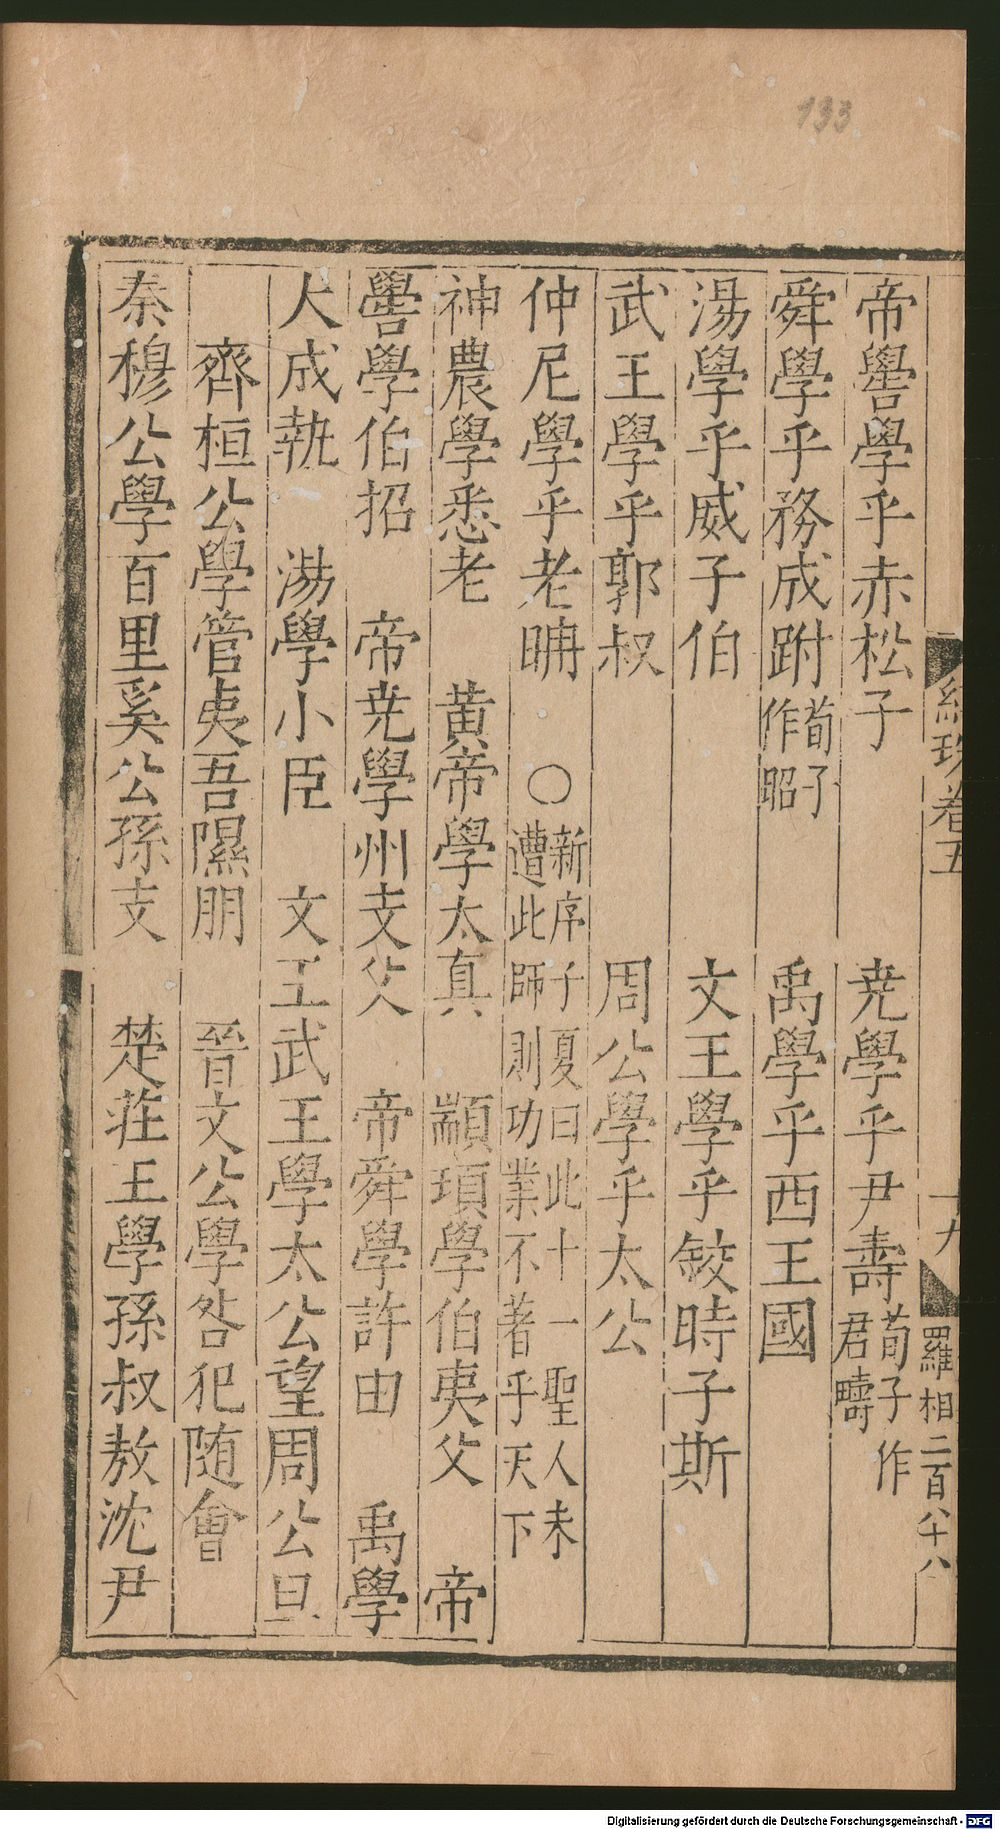 133
紺珠卷五 十九 羅相二百八十八
帝嚳學乎赤松子 尭學乎尹壽荀子作君疇
舜學乎務成跗荀子作昭 禹學乎西王國
湯學乎威子伯 文王學乎鉸時子斯
武王學乎郭叔 周公學乎太公
仲尼學乎老聃 〇新序子夏曰此十一聖人未遭此師則功業不著乎天下
神農學悉老 黄帝學太真 顓頊學伯夷父 帝
嚳學伯招 帝尭學州支父 帝舜學許由 禹學
大成執 湯學小臣 文王武王學太公望周公旦
齊桓公學管夷吾隰朋 晉文公學咎犯随會
秦穆公學百里奚公孫支 楚莊王學孫叔敖沈尹
Digitalisierung gefördert durch die Deutsche Forschungsgemeinschaft - DFG